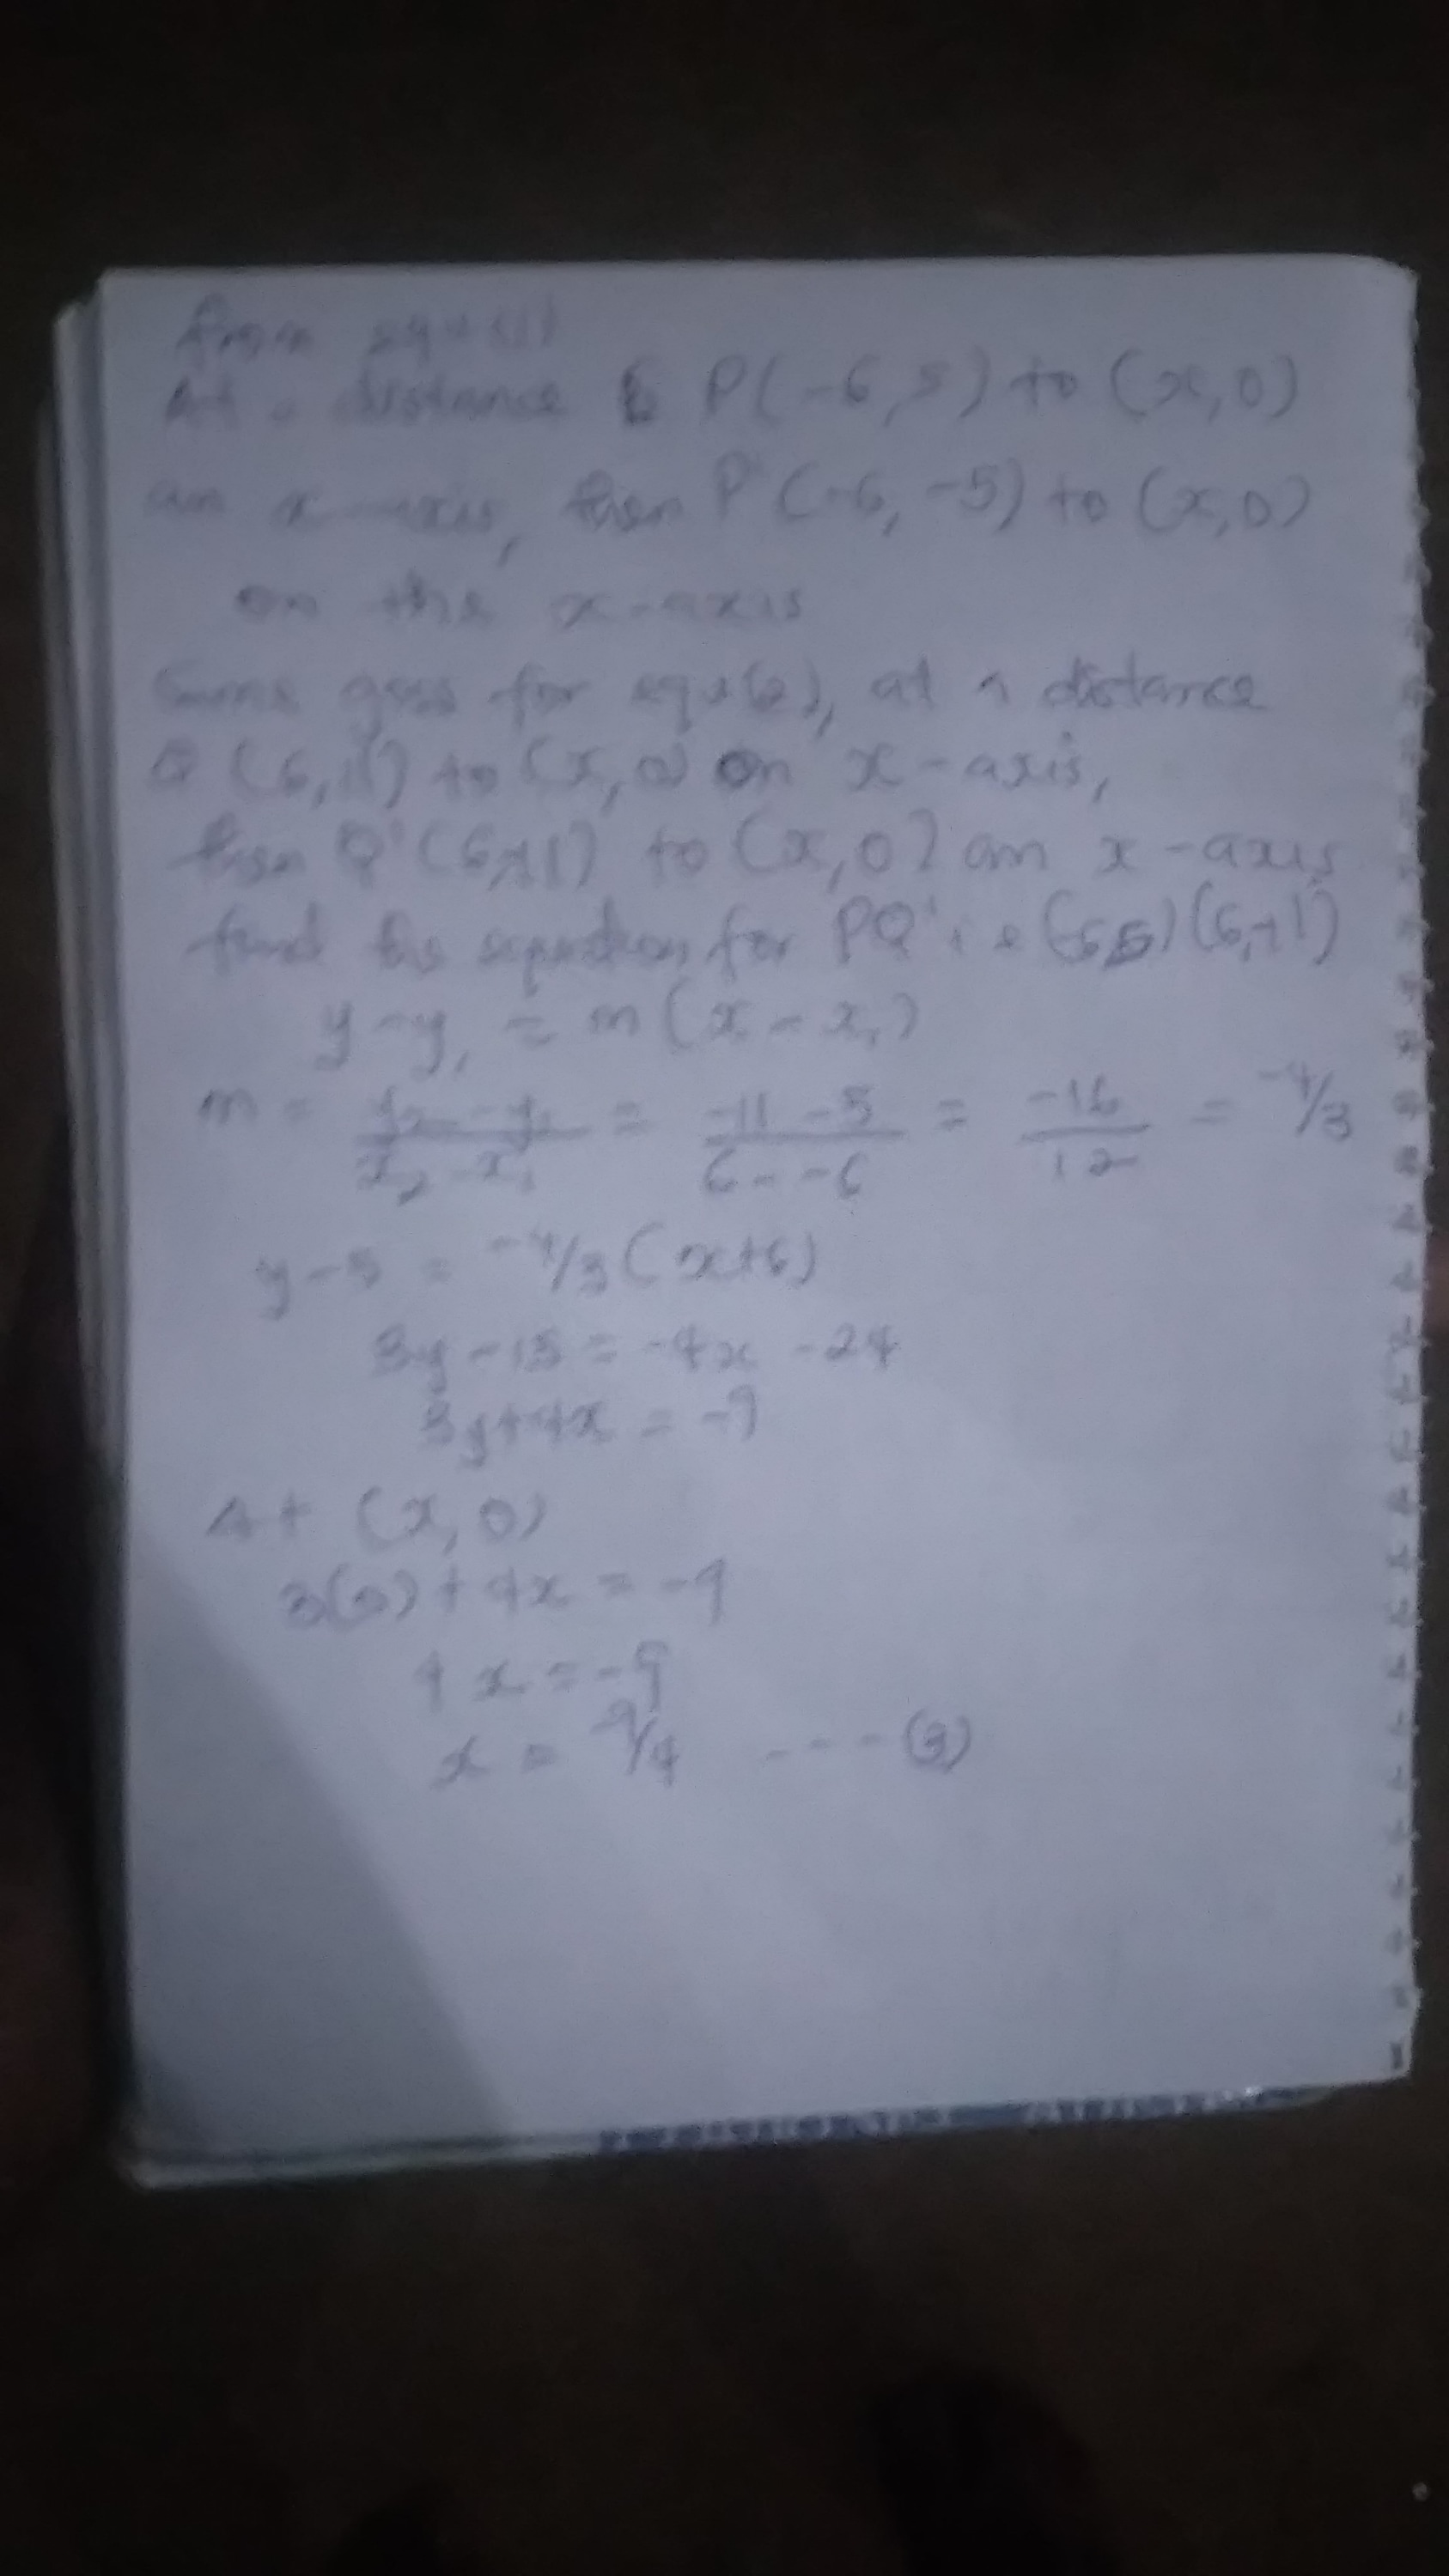 from eqn (1)
At a distance P(-6, 5) to (x, 0)
on x-axis, then P'(-6, -5) to (x, 0)
on the x-axis
Same goes for eqn (2), at a distance
Q (6, 11) to (x, 0) on x-axis,
then Q'(6,-11) to (x, 0) on x-axis
find the equation for PQ' i.e (-6,5) (6,-11)
y-y₁ = m(x - x₁)
m = y₂ - y₁ / x₂ - x₁ = -11 - 5 / 6 - -6 = -16 / 12 = -4/3
y-5 = -4/3 (x+6)
3y - 15 = -4x - 24
3y+4x = -9
At (x, 0)
3(0) + 4x = -9
4x = -9
x = -9/4 - - - (3)